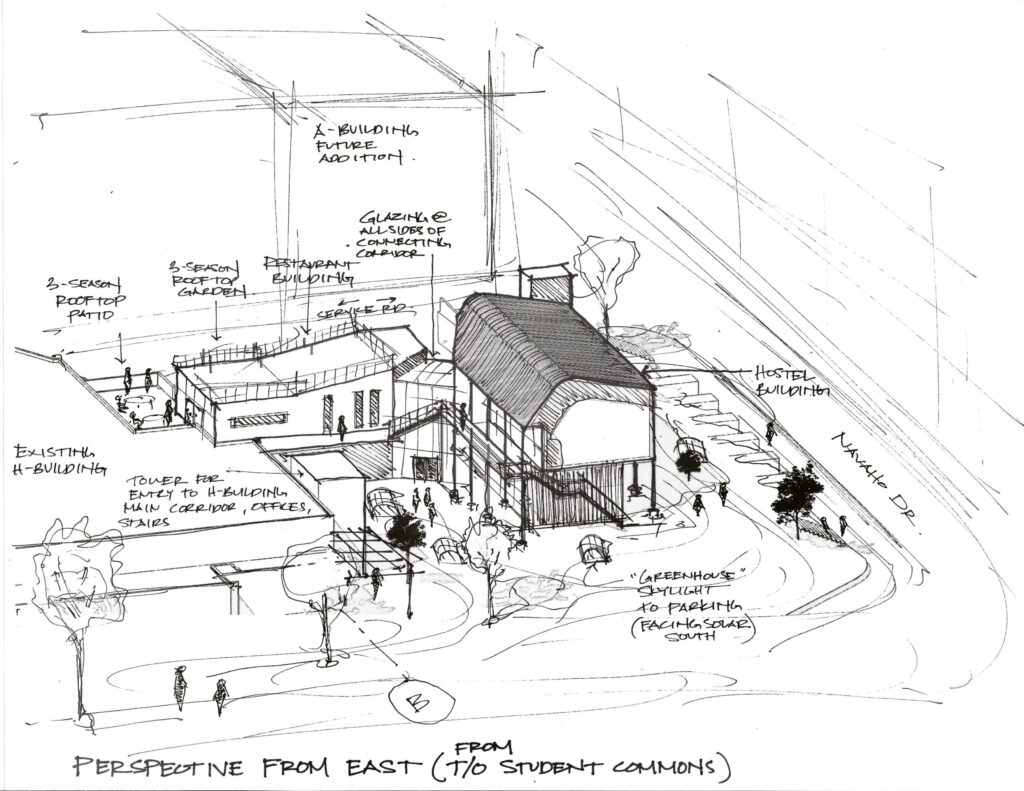 A-BUILDING
FUTURE
ADDITION.
GLAZING @
ALL SIDES OF
CONNECTING
CORRIDOR
RESTAURANT
BUILDING
3-SEASON
ROOFTOP
GARDEN
3-SEASON
ROOFTOP
PATIO
SERVICE RD.
HOSTEL
BUILDING
NAVAHO DR.
EXISTING
H-BUILDING
TOWER FOR
ENTRY TO H-BUILDING
MAIN CORRIDOR, OFFICES,
STAIRS
"GREENHOUSE"
SKYLIGHT
TO PARKING
(FACING SOLAR
SOUTH)
B
PERSPECTIVE FROM EAST (FROM T/O STUDENT COMMONS)